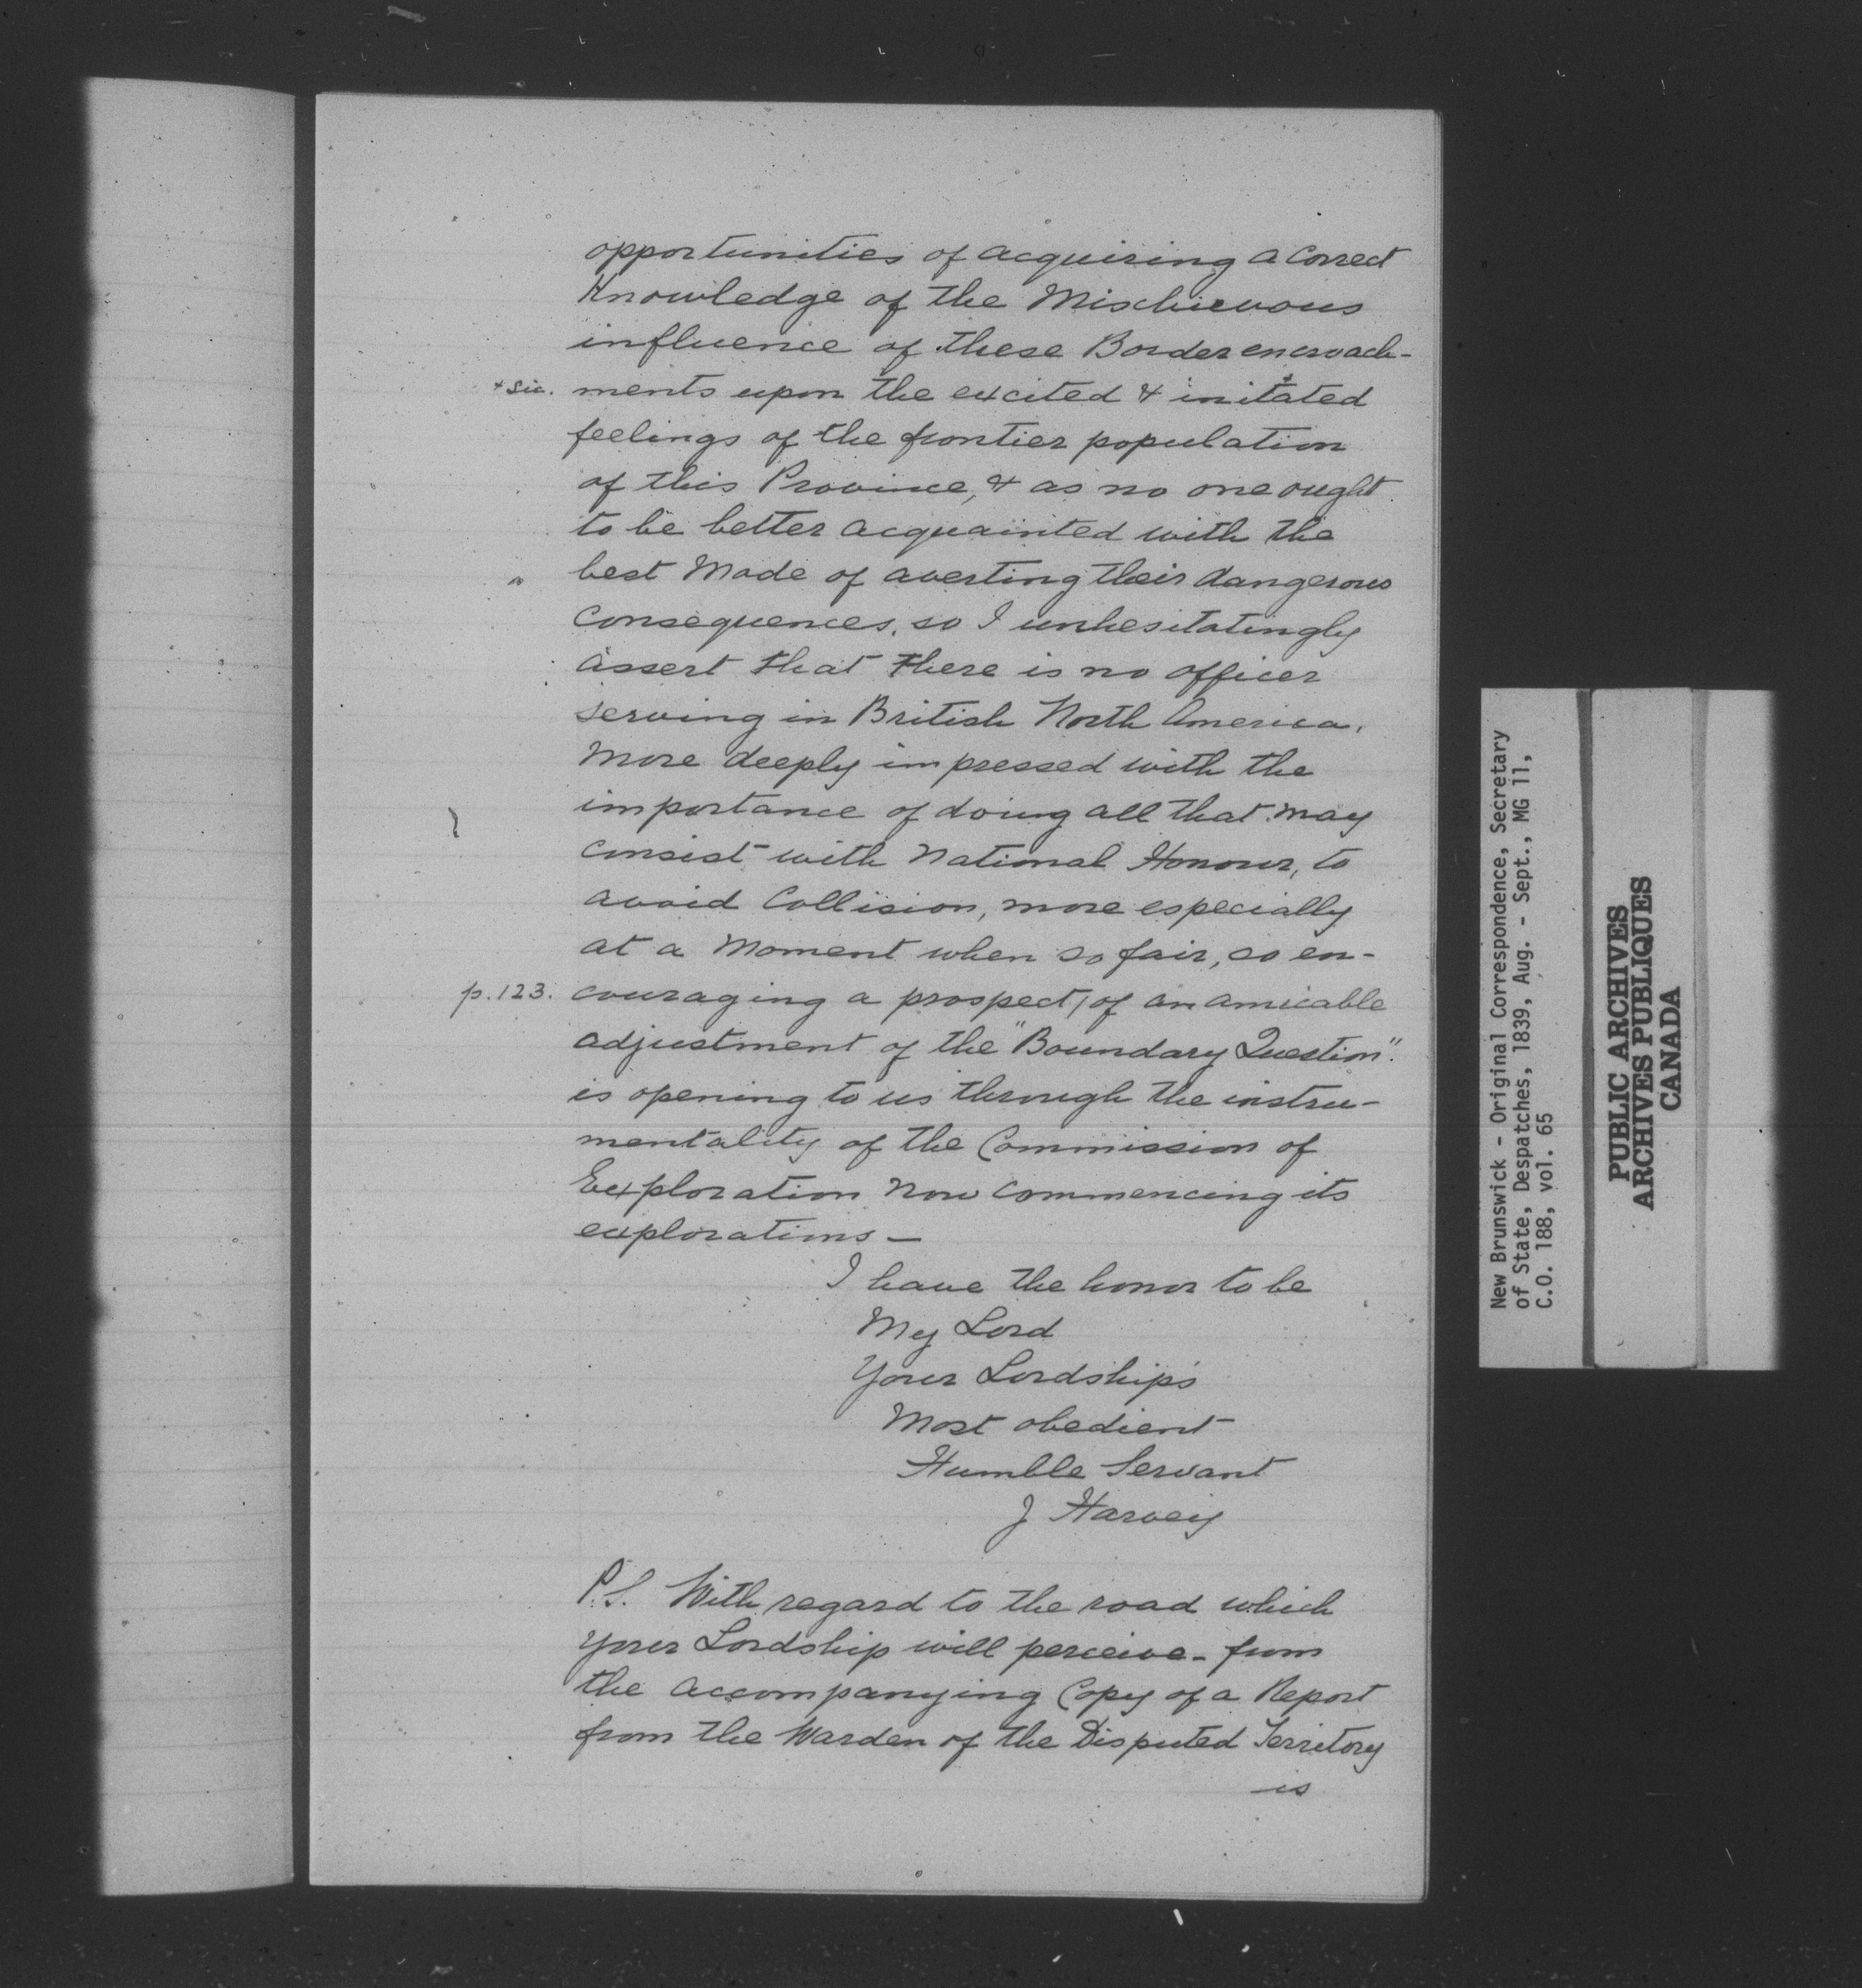 opportunities of acquiring a Correct
Knowledge of the Mischievous
influence of these Border encroach-
+ sic. ments upon the excited & initated
feelings of the frontier population
of this Province, & as no one ought
to be better acquainted with the
best Mode of averting their dangerous
Consequences, so I unhesitatingly
assert that there is no officer
serving in British North America,
More deeply impressed with the
importance of doing all that may
consist with National Honour, to
avoid Collision, more especially
at a Moment when so fair, so en-
p.123. couraging a prospect/of an amicable
adjustment of the "Boundary Question".
is opening to us through the instru-
mentality of the Commission of
Exploration now commencing its
explorations —
I have the honor to be
My Lord
Your Lordship's
Most obedient
Humble Servant
J Harvey
P.S. With regard to the road which
your Lordship will perceive - from
the accompanying Copy of a Report
from the Warden of the Disputed Territory
is
New Brunswick - Original Correspondence, Secretary
of State, Despatches, 1839, Aug. - Sept., MG 11,
C.O. 188, vol. 65
PUBLIC ARCHIVES
ARCHIVES PUBLIQUES
CANADA